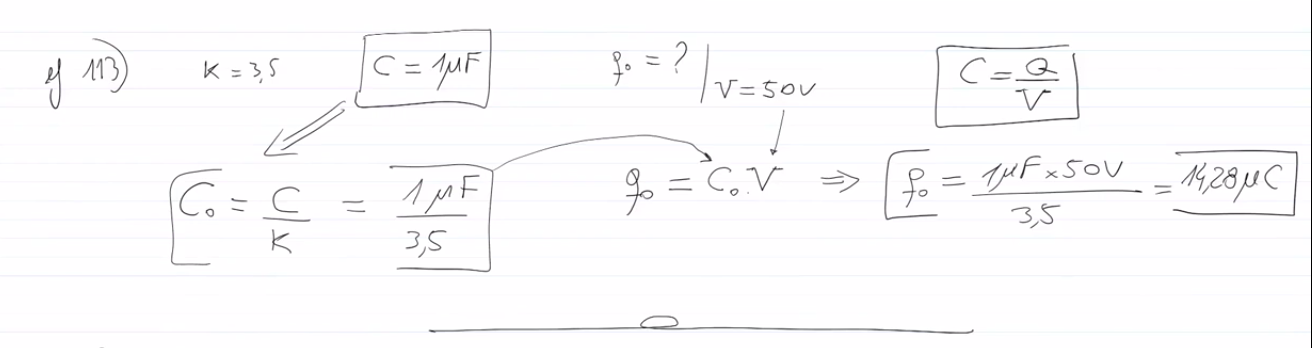 ej 113) K = 3,5 C = 1μF q₀ = ? V = 50V C = Q/V
C₀ = C/K = 1μF/3,5 q₀ = C₀.V ⇒ q₀ = 1μF x 50V/3,5 = 14,28μC